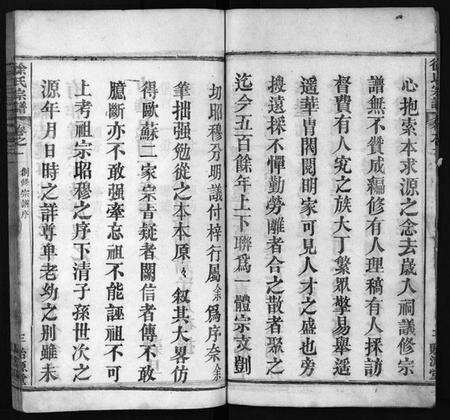 心抱索本求源之念去歲人祠議修宗
譜無不贊成編修有人理稿有人採訪
督費有人究之族大丁繁眾擎易舉遥
遥華胄閥閱明家可見人才之盛也旁
搜遠採不惲勤勞離者合之散者聚之
迄今五百餘年上下聯為一體宗支劃
切昭穆分明議付梓行屬余為序奈余
筆拙强勉從之本本原々叙其大畧仿
得歐蘇二家宗旨疑者闕信者傳不敢
臆斷亦不敢强牽忘祖不能誣祖不可
上考祖宗昭穆之序下清子孫世次之
源年月日時之詳尊卑老幼之別雖未
徐氏宗譜
卷之一
創修宗譜序
三